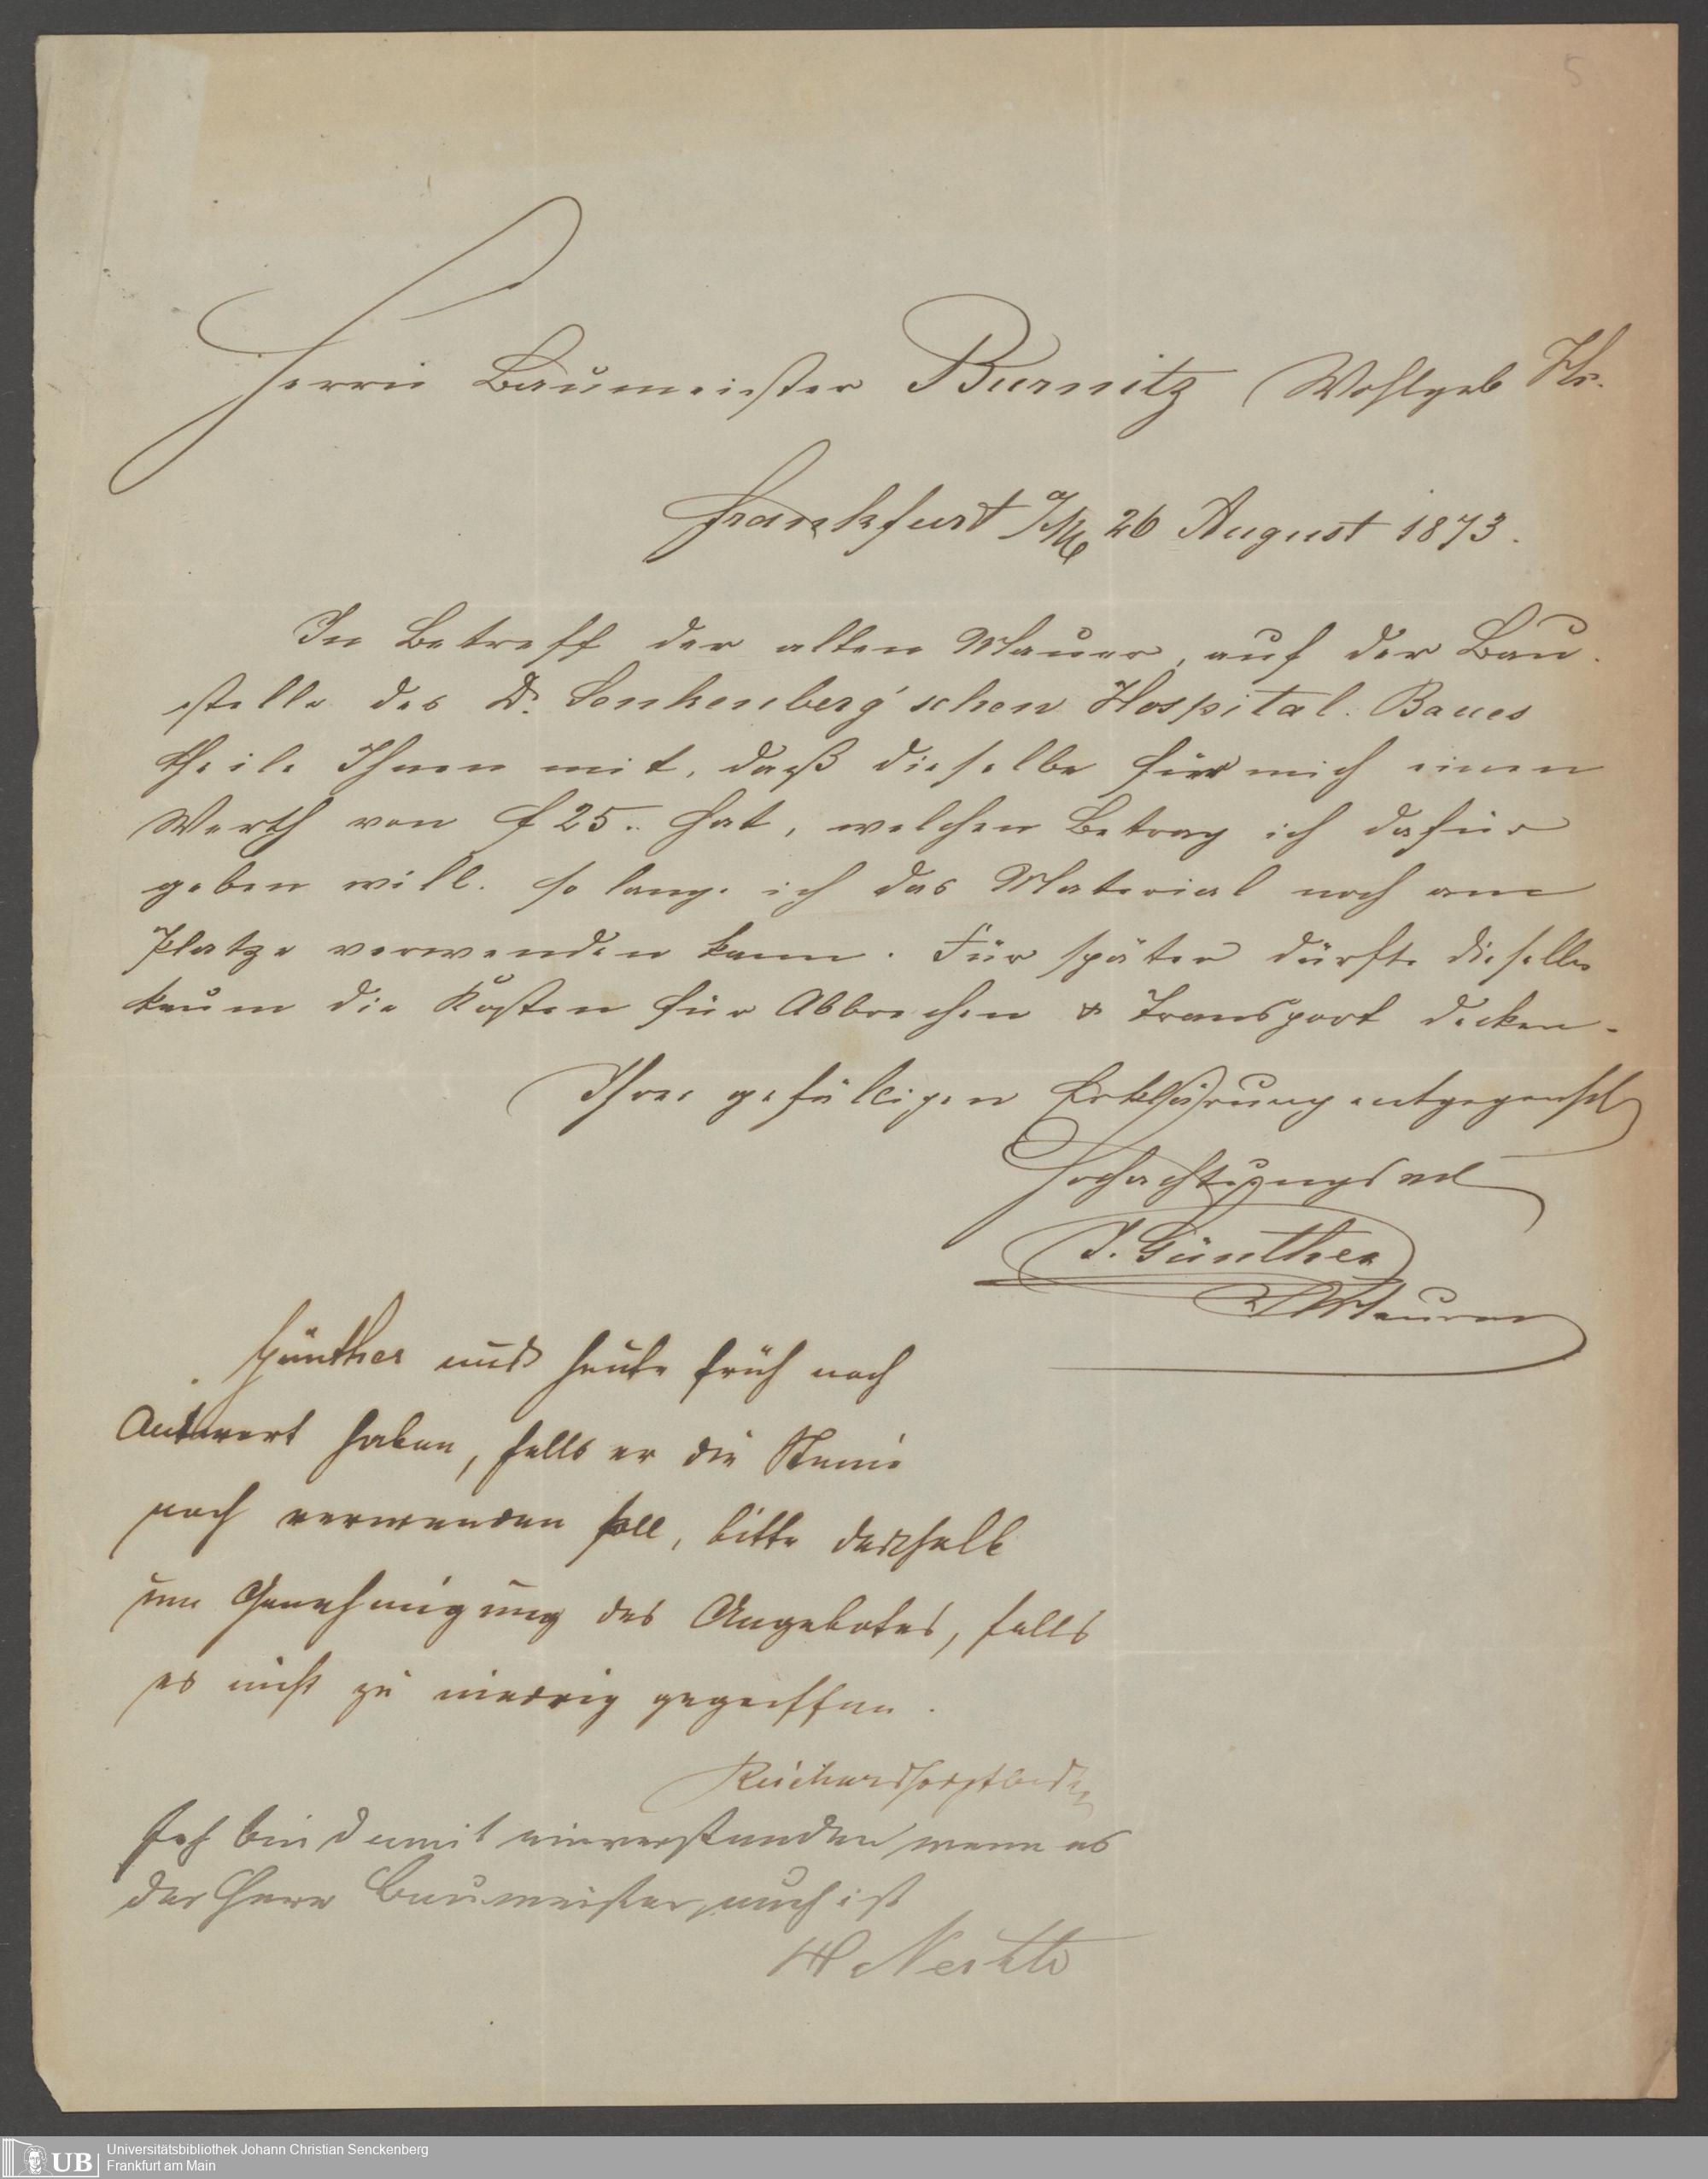 5
Herrn Baumeister Burnitz Wohlgeb Hr.
Frankfurt a/M 26 August 1873.
In Betreff der alten Mauer, auf der Bau-
stelle des Dr. Senkenberg'schen Hospital-Baues
theile Ihnen mit, daß dieselbe für mich einen
Werth von f 25.. hat, welchen Betrag ich dafür
geben will. so lange ich das Material noch am
Platze verwenden kann. Für später dürfte dieselbe
kaum die Kosten für Abbrechen & Transport decken.
Ihrer gefälligen Erklärung entgegenseh
Hochachtungsvoll
J. Günther
Maurer
Günther muß heute früh noch
Antwort haben, falls er die Steine
noch verwenden soll, bitte deßhalb
um Genehmigung des Angebotes, falls
es nicht zu niedrig gegriffen.
Ich bin damit einverstanden wenn es
der Herr Baumeister auch ist
H
Universitätsbibliothek Johann Christian Senckenberg
UB
Frankfurt am Main